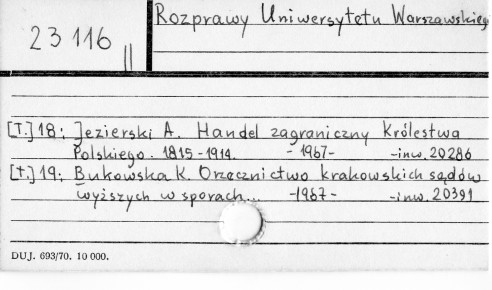 Rozprawy Uniwersytetu Warszawskieg
23116 II
[T.] 18: Jezierski A. Handel zagraniczny Królestwa
Polskiego. 1815-1914. -1967- -inw. 20286
[t.] 19: Bukowska K. Orzecznictwo krakowskich sądów
wyższych w sporach... -1967- -inw. 20391
DUJ. 693/70. 10 000.